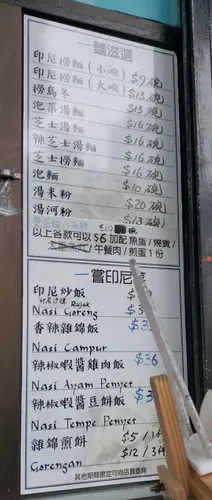 一麵滋選
印尼撈麵(小碗) $9碗
印尼撈麵(大碗) $13碗
撈烏冬 $13碗
泡菜湯麵 $16碗
芝士湯麵 $16碗
辣芝士湯麵 $16碗
芝士撈麵 $16碗
泡麵 $10碗
湯米粉 $20碗
湯河粉 $13碗
以上各款可以 $6 加配 魚蛋/燒賣/
午餐肉/煎蛋1份
一嘗印尼
印尼炒飯
印尼沙律 Rujak
Nasi Goreng
香辣雜錦飯
Nasi Campur
辣椒蝦醬雞肉飯 $36
Nasi Ayam Penyet
辣椒蝦醬豆餅飯 $3
Nasi Tempe Penyet
雜錦煎餅 $5/1
Gorengan $12/3
其他期間限定可向店員查詢